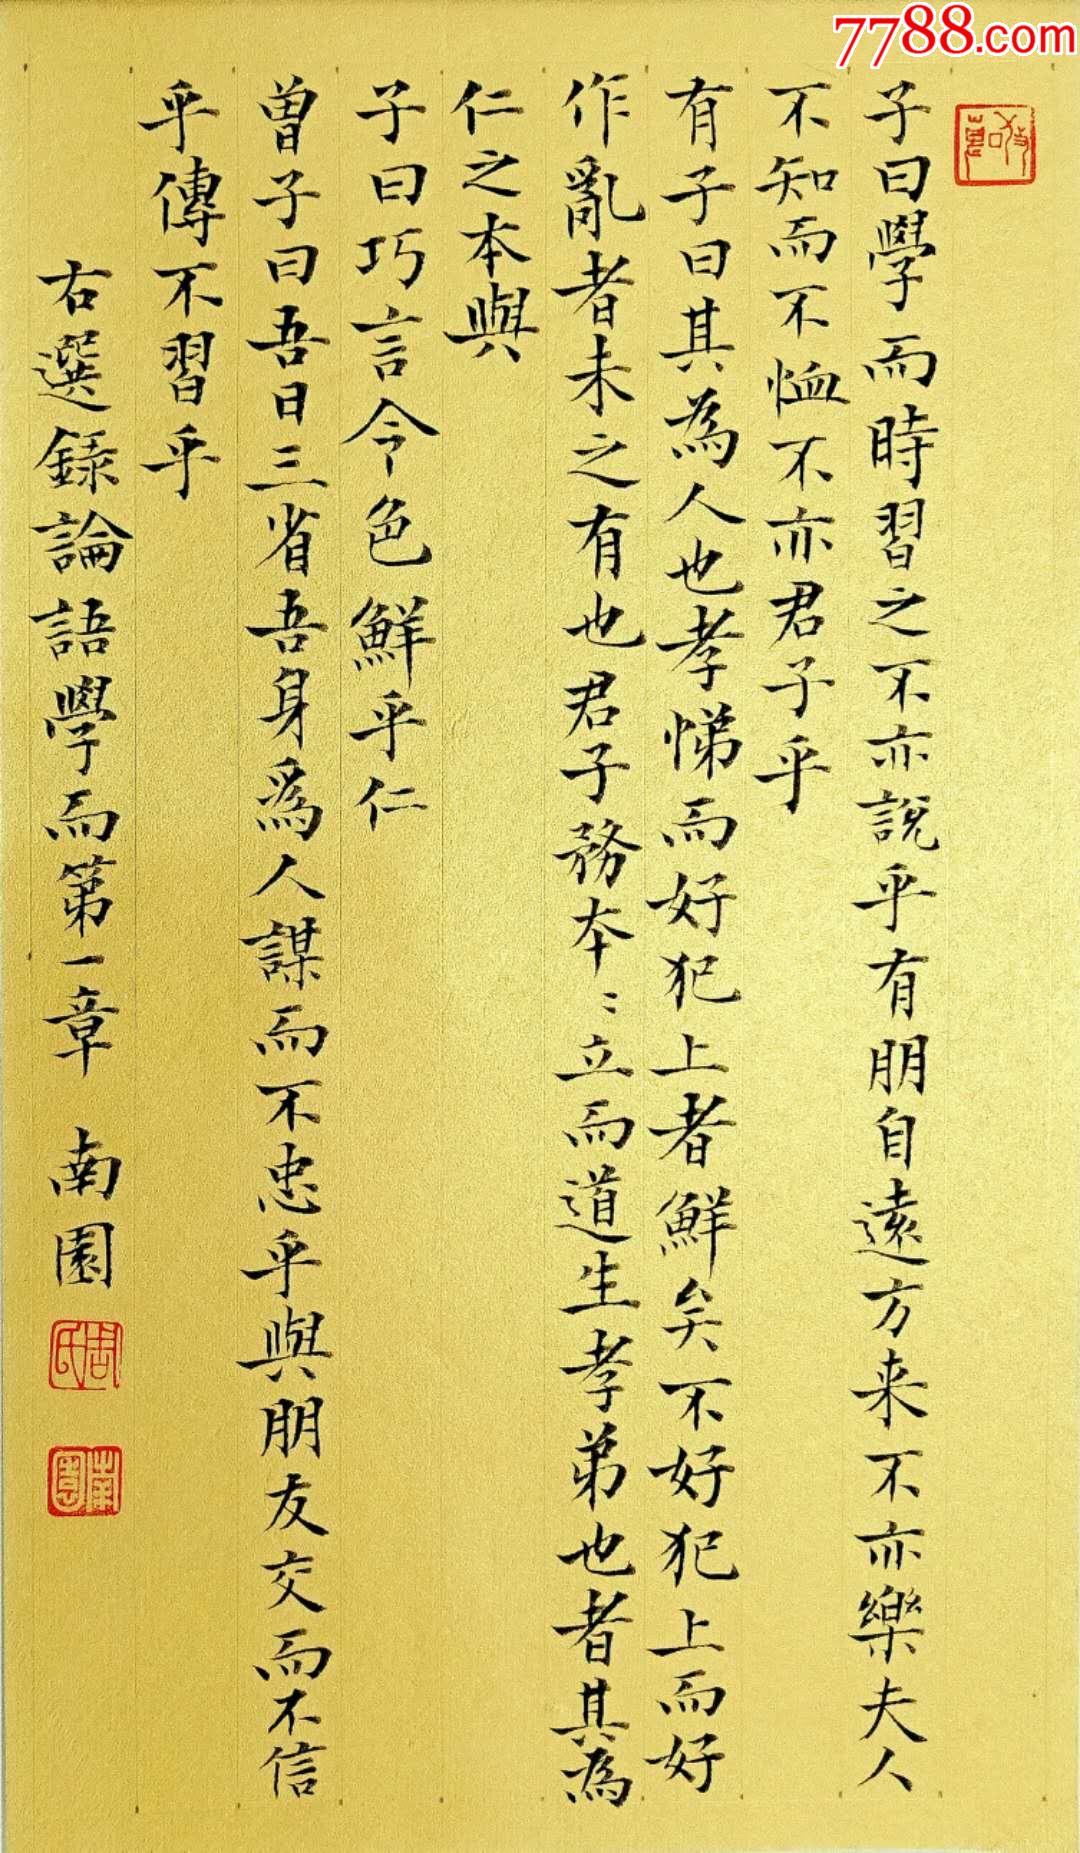 7788.com
子曰學而時習之不亦說乎有朋自遠方来不亦樂夫人
不知而不恤不亦君子乎
有子曰其為人也孝悌而好犯上者鮮矣不好犯上而好
作亂者未之有也君子務本〻立而道生孝弟也者其為
仁之本與
子曰巧言令色鮮乎仁
曾子曰吾日三省吾身爲人謀而不忠乎與朋友交而不信
乎傳不習乎
右選錄論語學而第一章 南園
周氏
南園